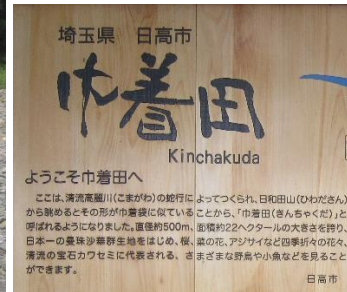 埼玉県 日高市
巾着田
Kinchakuda
ようこそ巾着田へ
ここは、清流高麗川(こまがわ)の蛇行によってつくられ、日和田山(ひわださん)
から眺めるとその形が巾着袋に似ていることから、「巾着田(きんちゃくだ)」と
呼ばれるようになりました。直径約500m、面積約22ヘクタールの大きさを誇り、
日本一の曼珠沙華群生地をはじめ、桜、菜の花、アジサイなど四季折々の花々、
清流の宝石カワセミに代表される、さまざまな野鳥や小魚などを見ること
ができます。
日高市